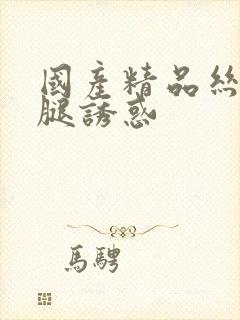 國產精品絲
腿誘惑
馬騁